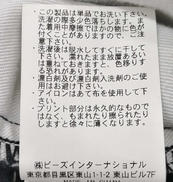 ・この製品は単品でお洗い下さい。
洗濯の際多少色落ちします。
また着用中摩擦でほかの物に色が
付くことがありますので、ご注意
下さい。
・洗濯後は脱水してすぐに干して
下さい。濡れたまま放置あるい
は重ねておくと、色移りするこ
とがあります。
・濃色漂白及び漂白剤入洗剤のご使
用はお避け下さい。
・アイロンは当て布を使用して下
さい。
・プリント部分は永久的なものではな
なく、もまれたり擦られたり
しますと徐々に薄くなります。
㈱ビーズインターナショナル
東京都目黒区東山1-1-2 東山ビル7F